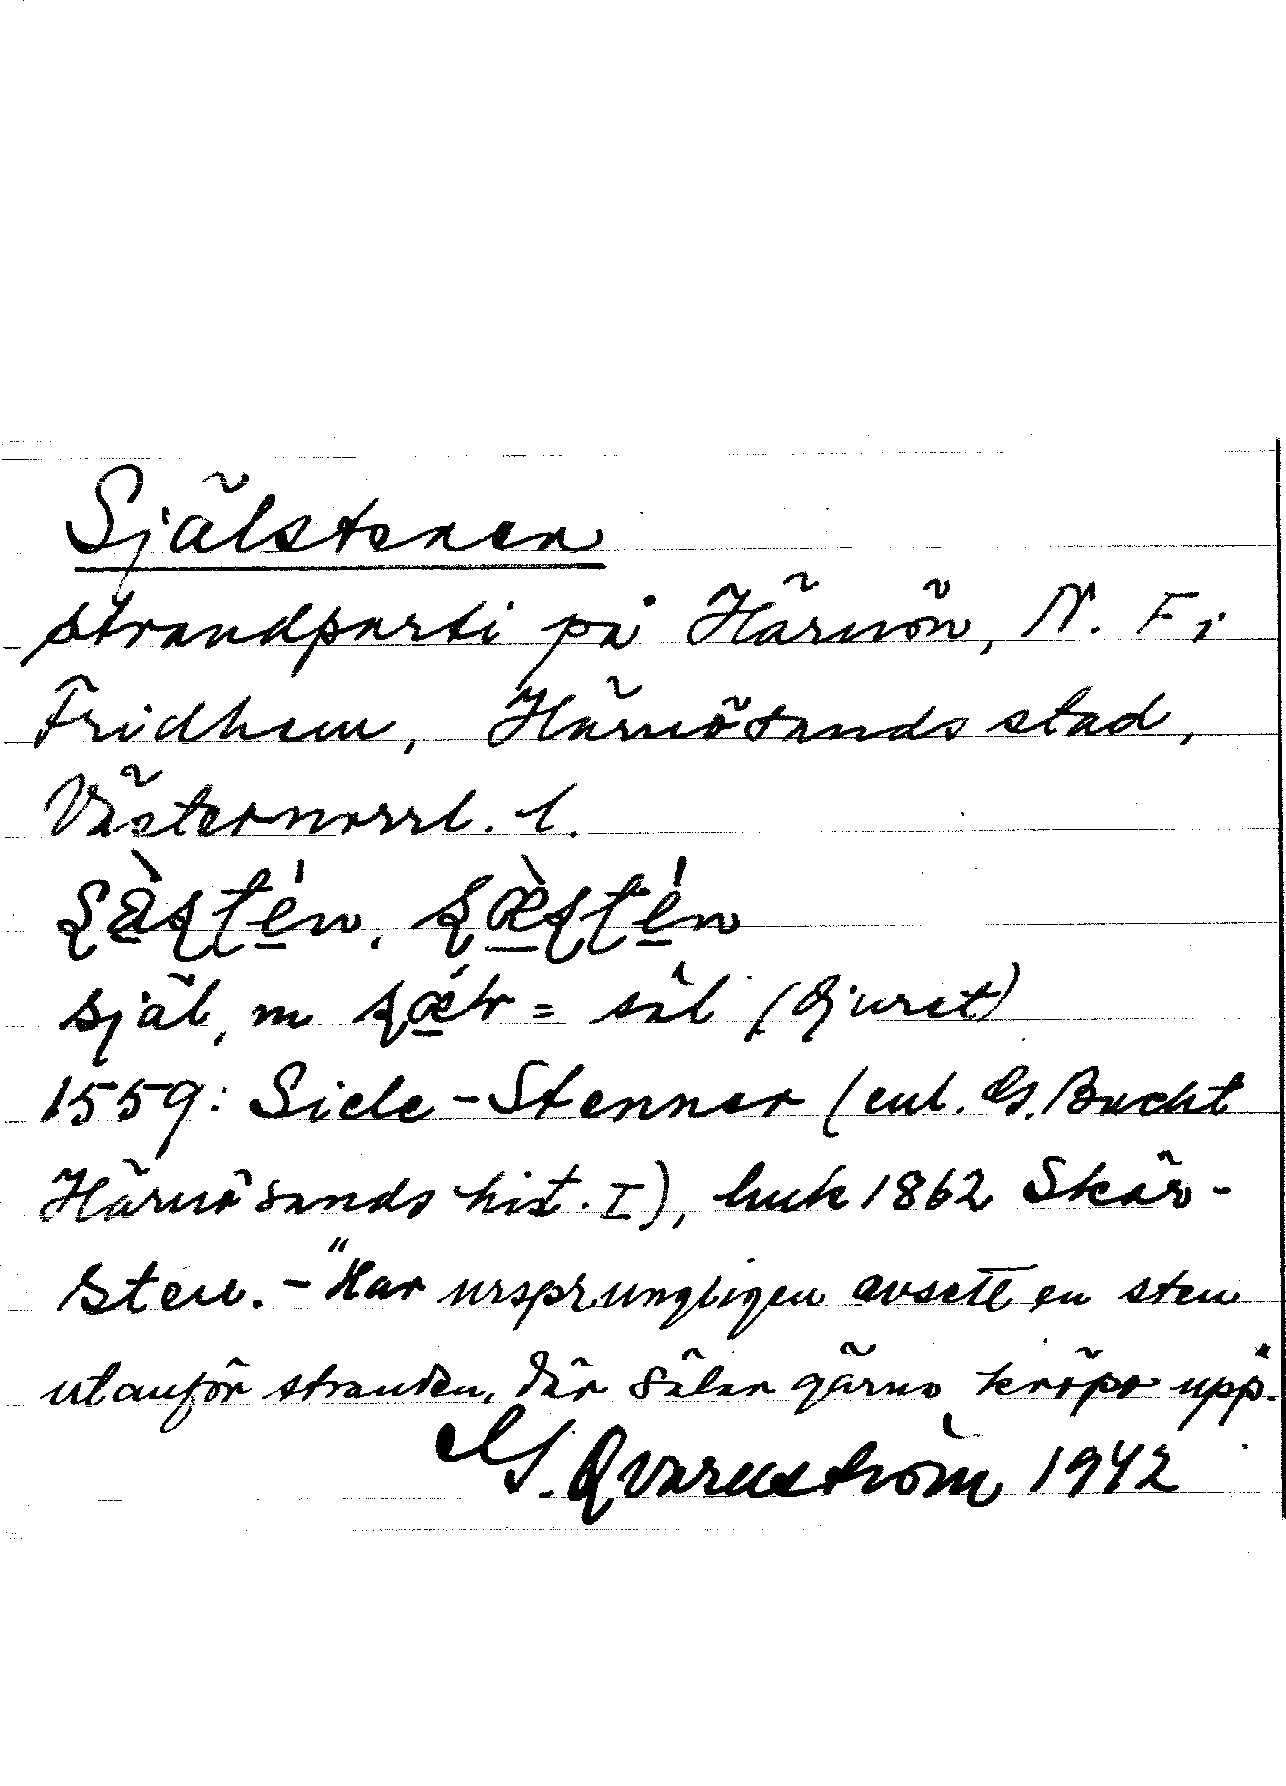 Själstenen
strandparti på Härnön, N. F.
Fridhem, Härnösands stad,
Västernorrl. l.
själ, m = säl (djuret)
1559: Siele-Stenner (enl. G. Bucht
Härnösands hist. I), huk 1862 Skär-
sten. - "Har ursprungligen avsett en sten
utanför stranden, där sälar gärna kröpo upp".
G. Qvarnström 1942